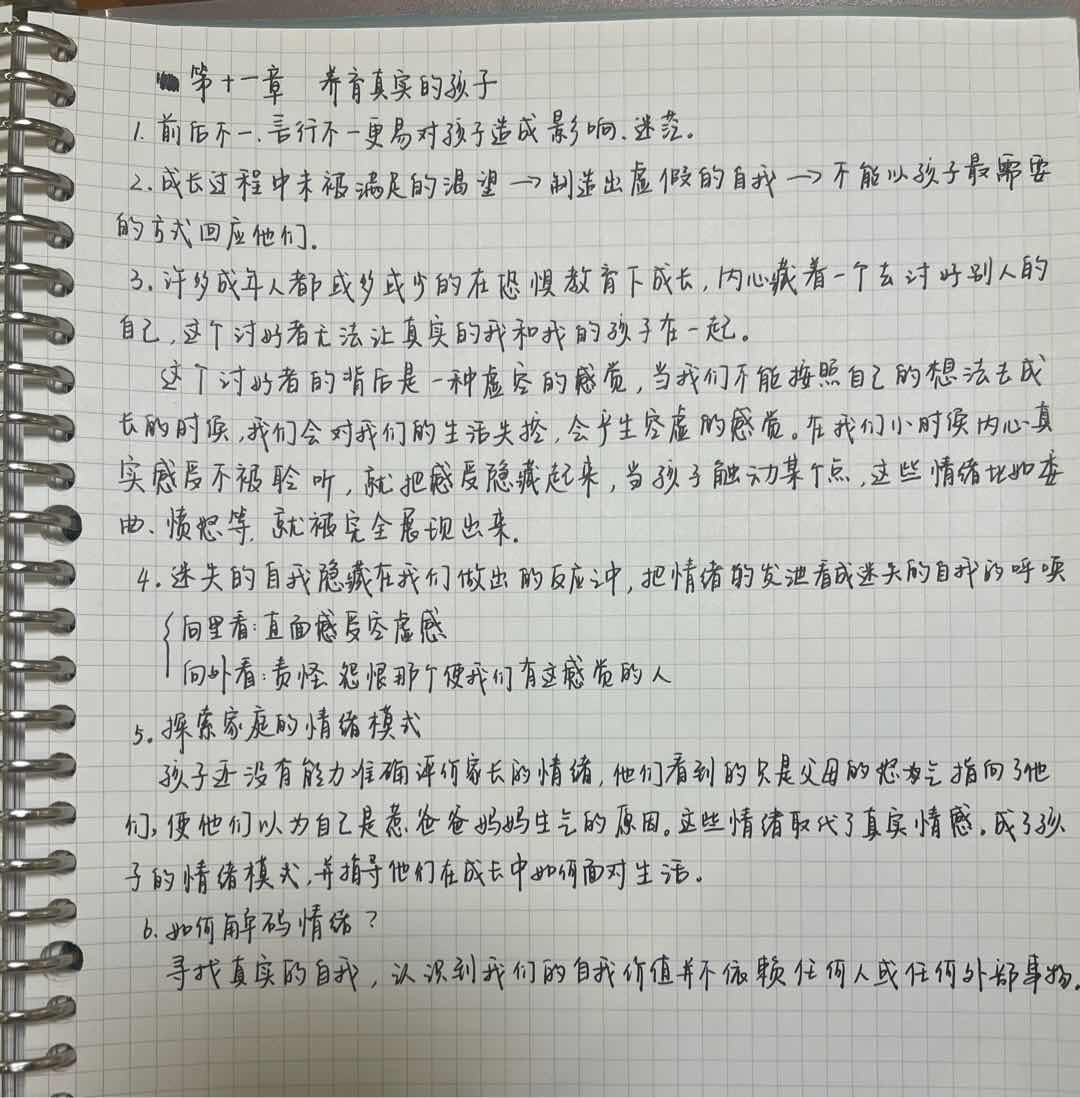 第十一章 养育真实的孩子
1. 前后不一、言行不一更易对孩子造成影响、迷茫。
2. 成长过程中未被满足的渴望→制造出虚假的自我→不能以孩子最需要
的方式回应他们。
3. 许多成年人都或多或少的在恐惧教育下成长,内心藏着一个去讨好别人的
自己,这个讨好者无法让真实的我和我的孩子在一起。
这个讨好者的背后是一种虚空的感觉,当我们不能按照自己的想法去成
长的时候,我们会对我们的生活失控,会产生空虚的感觉。在我们小时候内心真
实感受不被聆听,就把感受隐藏起来,当孩子触动某个点,这些情绪比如委
曲、愤怒等,就被完全展现出来。
4. 迷失的自我隐藏在我们做出的反应之中,把情绪的发泄看成迷失的自我的呼唤
向里看:直面感受空虚感
向外看:责怪 怨恨那个使我们有这感觉的人
5. 探索家庭的情绪模式
孩子还没有能力准确评价家长的情绪,他们看到的只是父母的怒气指向了他
们,使他们以为自己是惹爸爸妈妈生气的原因。这些情绪取代了真实情感,成了孩
子的情绪模式,并指导他们在成长中如何面对生活。
6. 如何解码情绪?
寻找真实的自我,认识到我们的自我价值并不依赖任何人或任何外部事物。